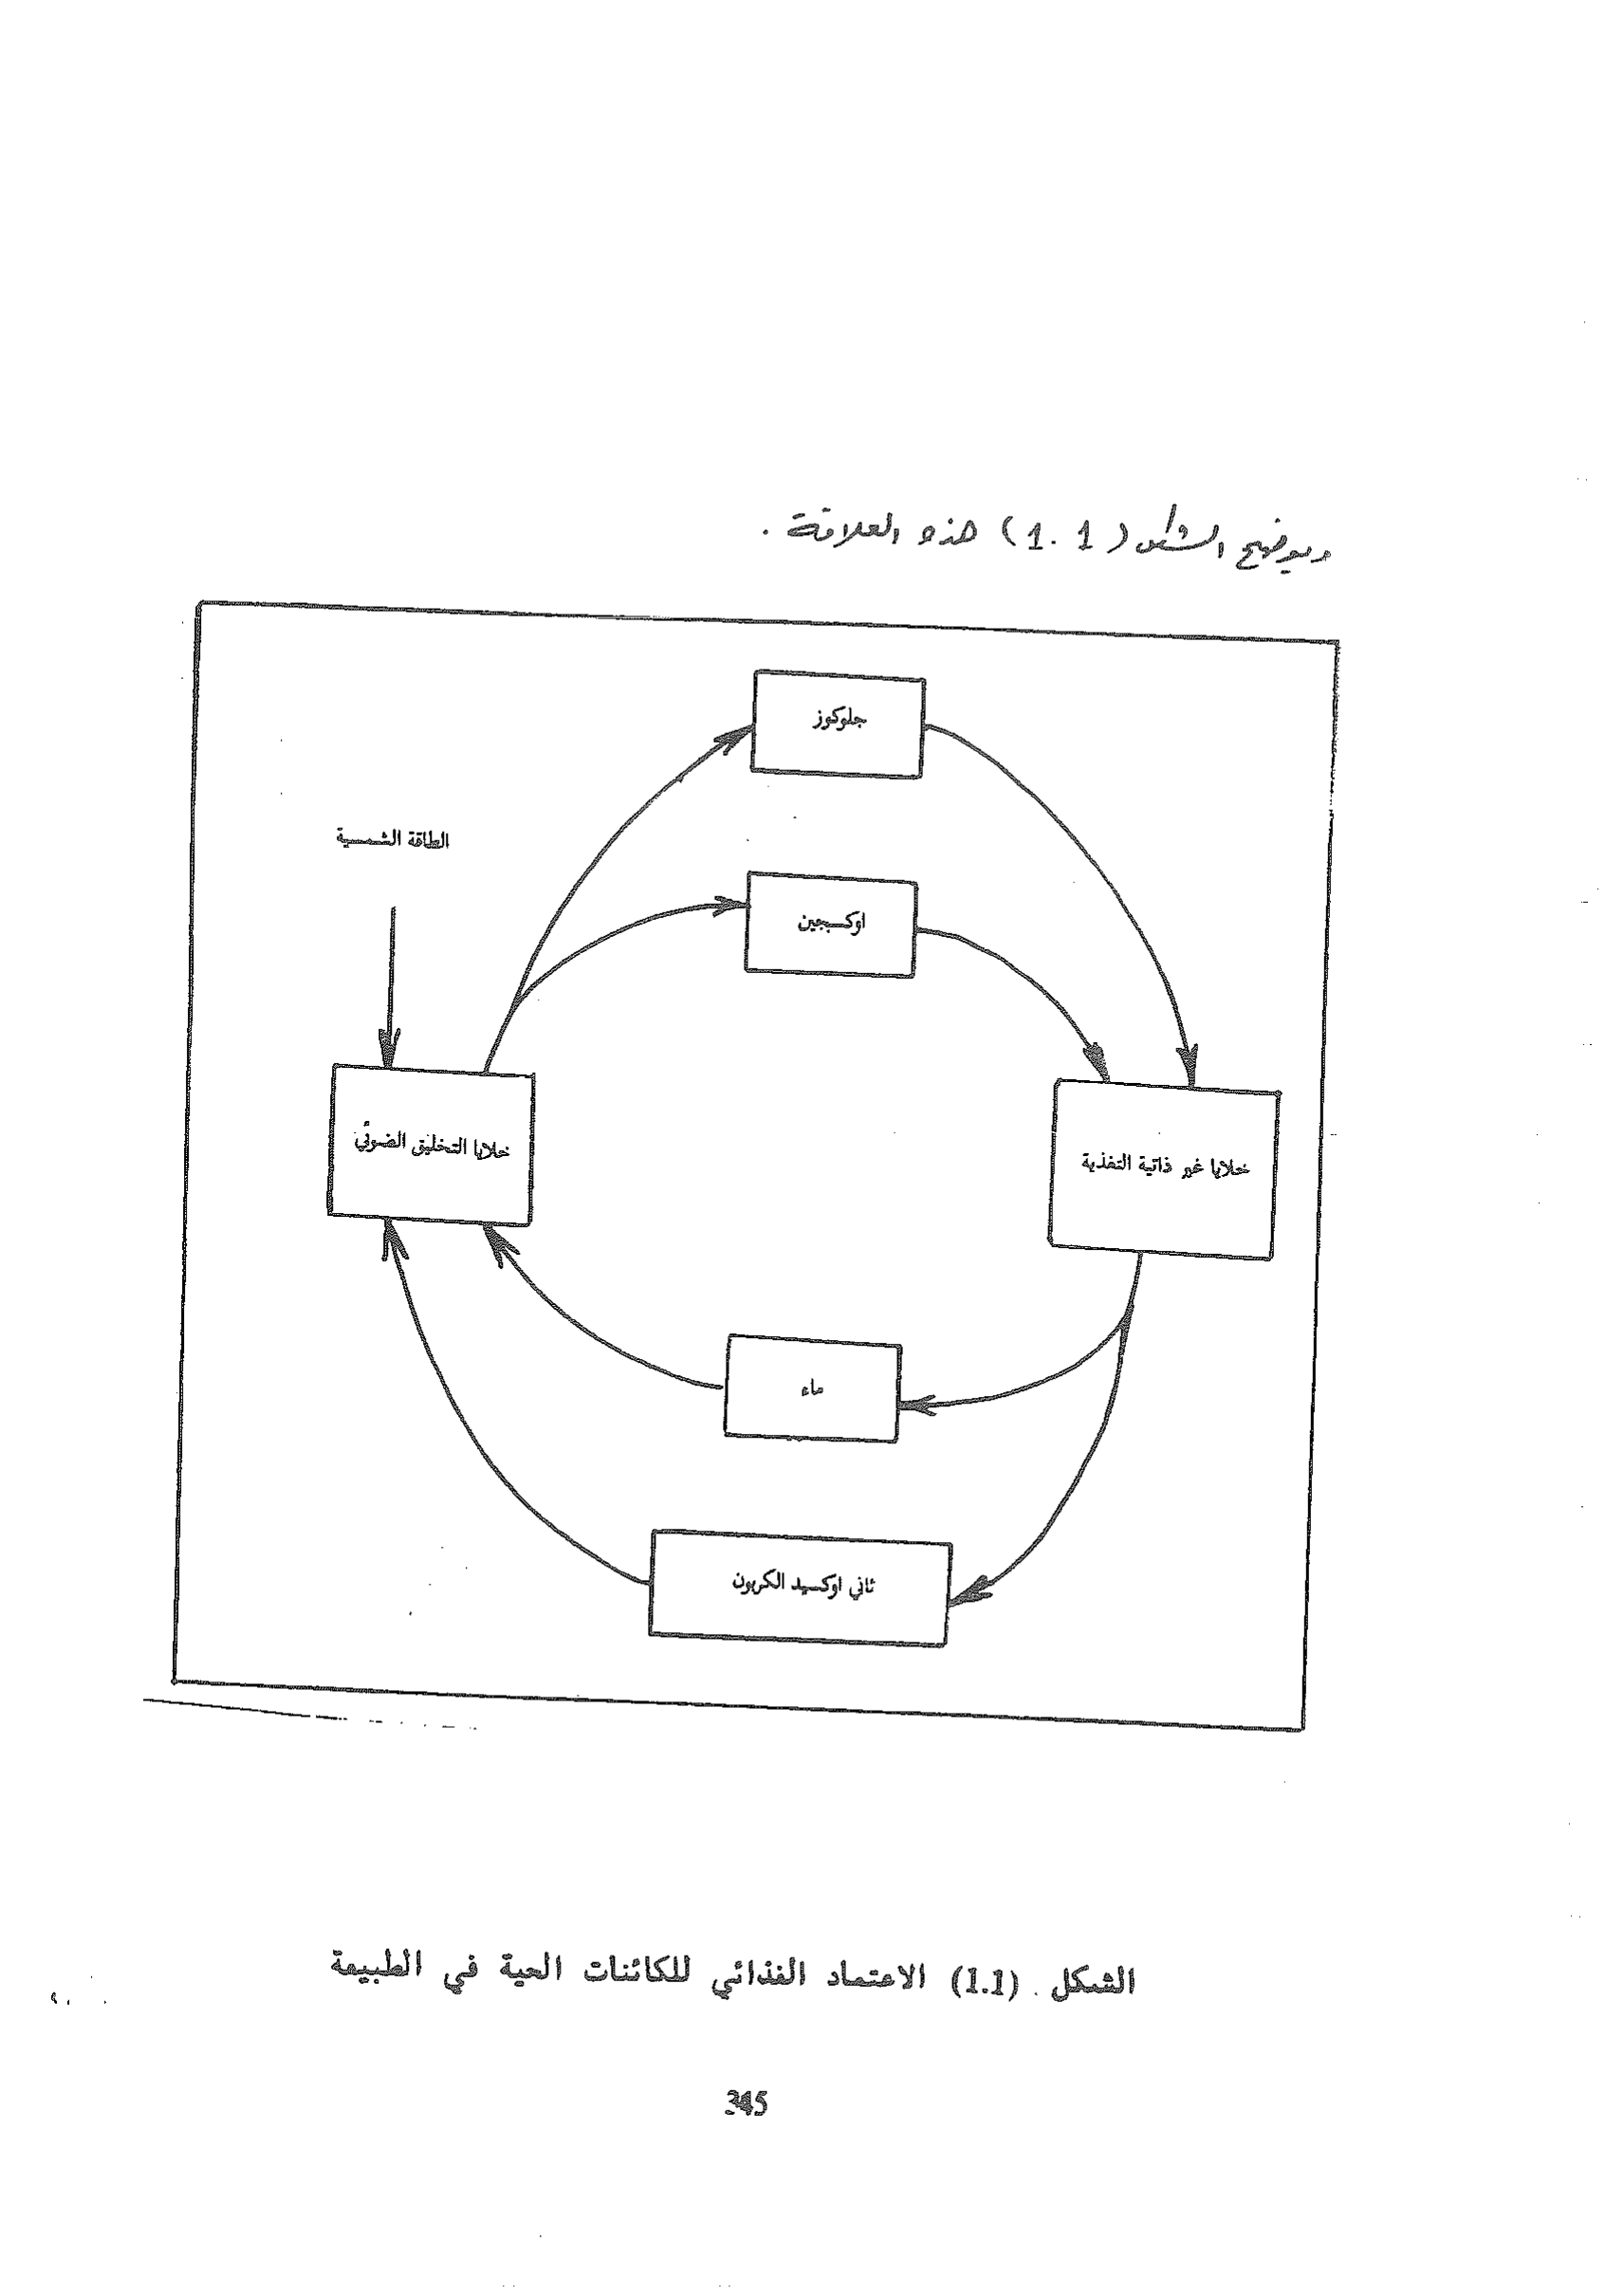 ويوضح الشكل (1.1) هذه العلاقة .
جلوكوز
الطاقة الشمسية
اوكسجين
خلايا التخليق الضوئي
خلايا غير ذاتية التغذية
ماء
ثاني اوكسيد الكربون
الشكل (1.1) الاعتماد الغذائي للكائنات الحية في الطبيعة
345